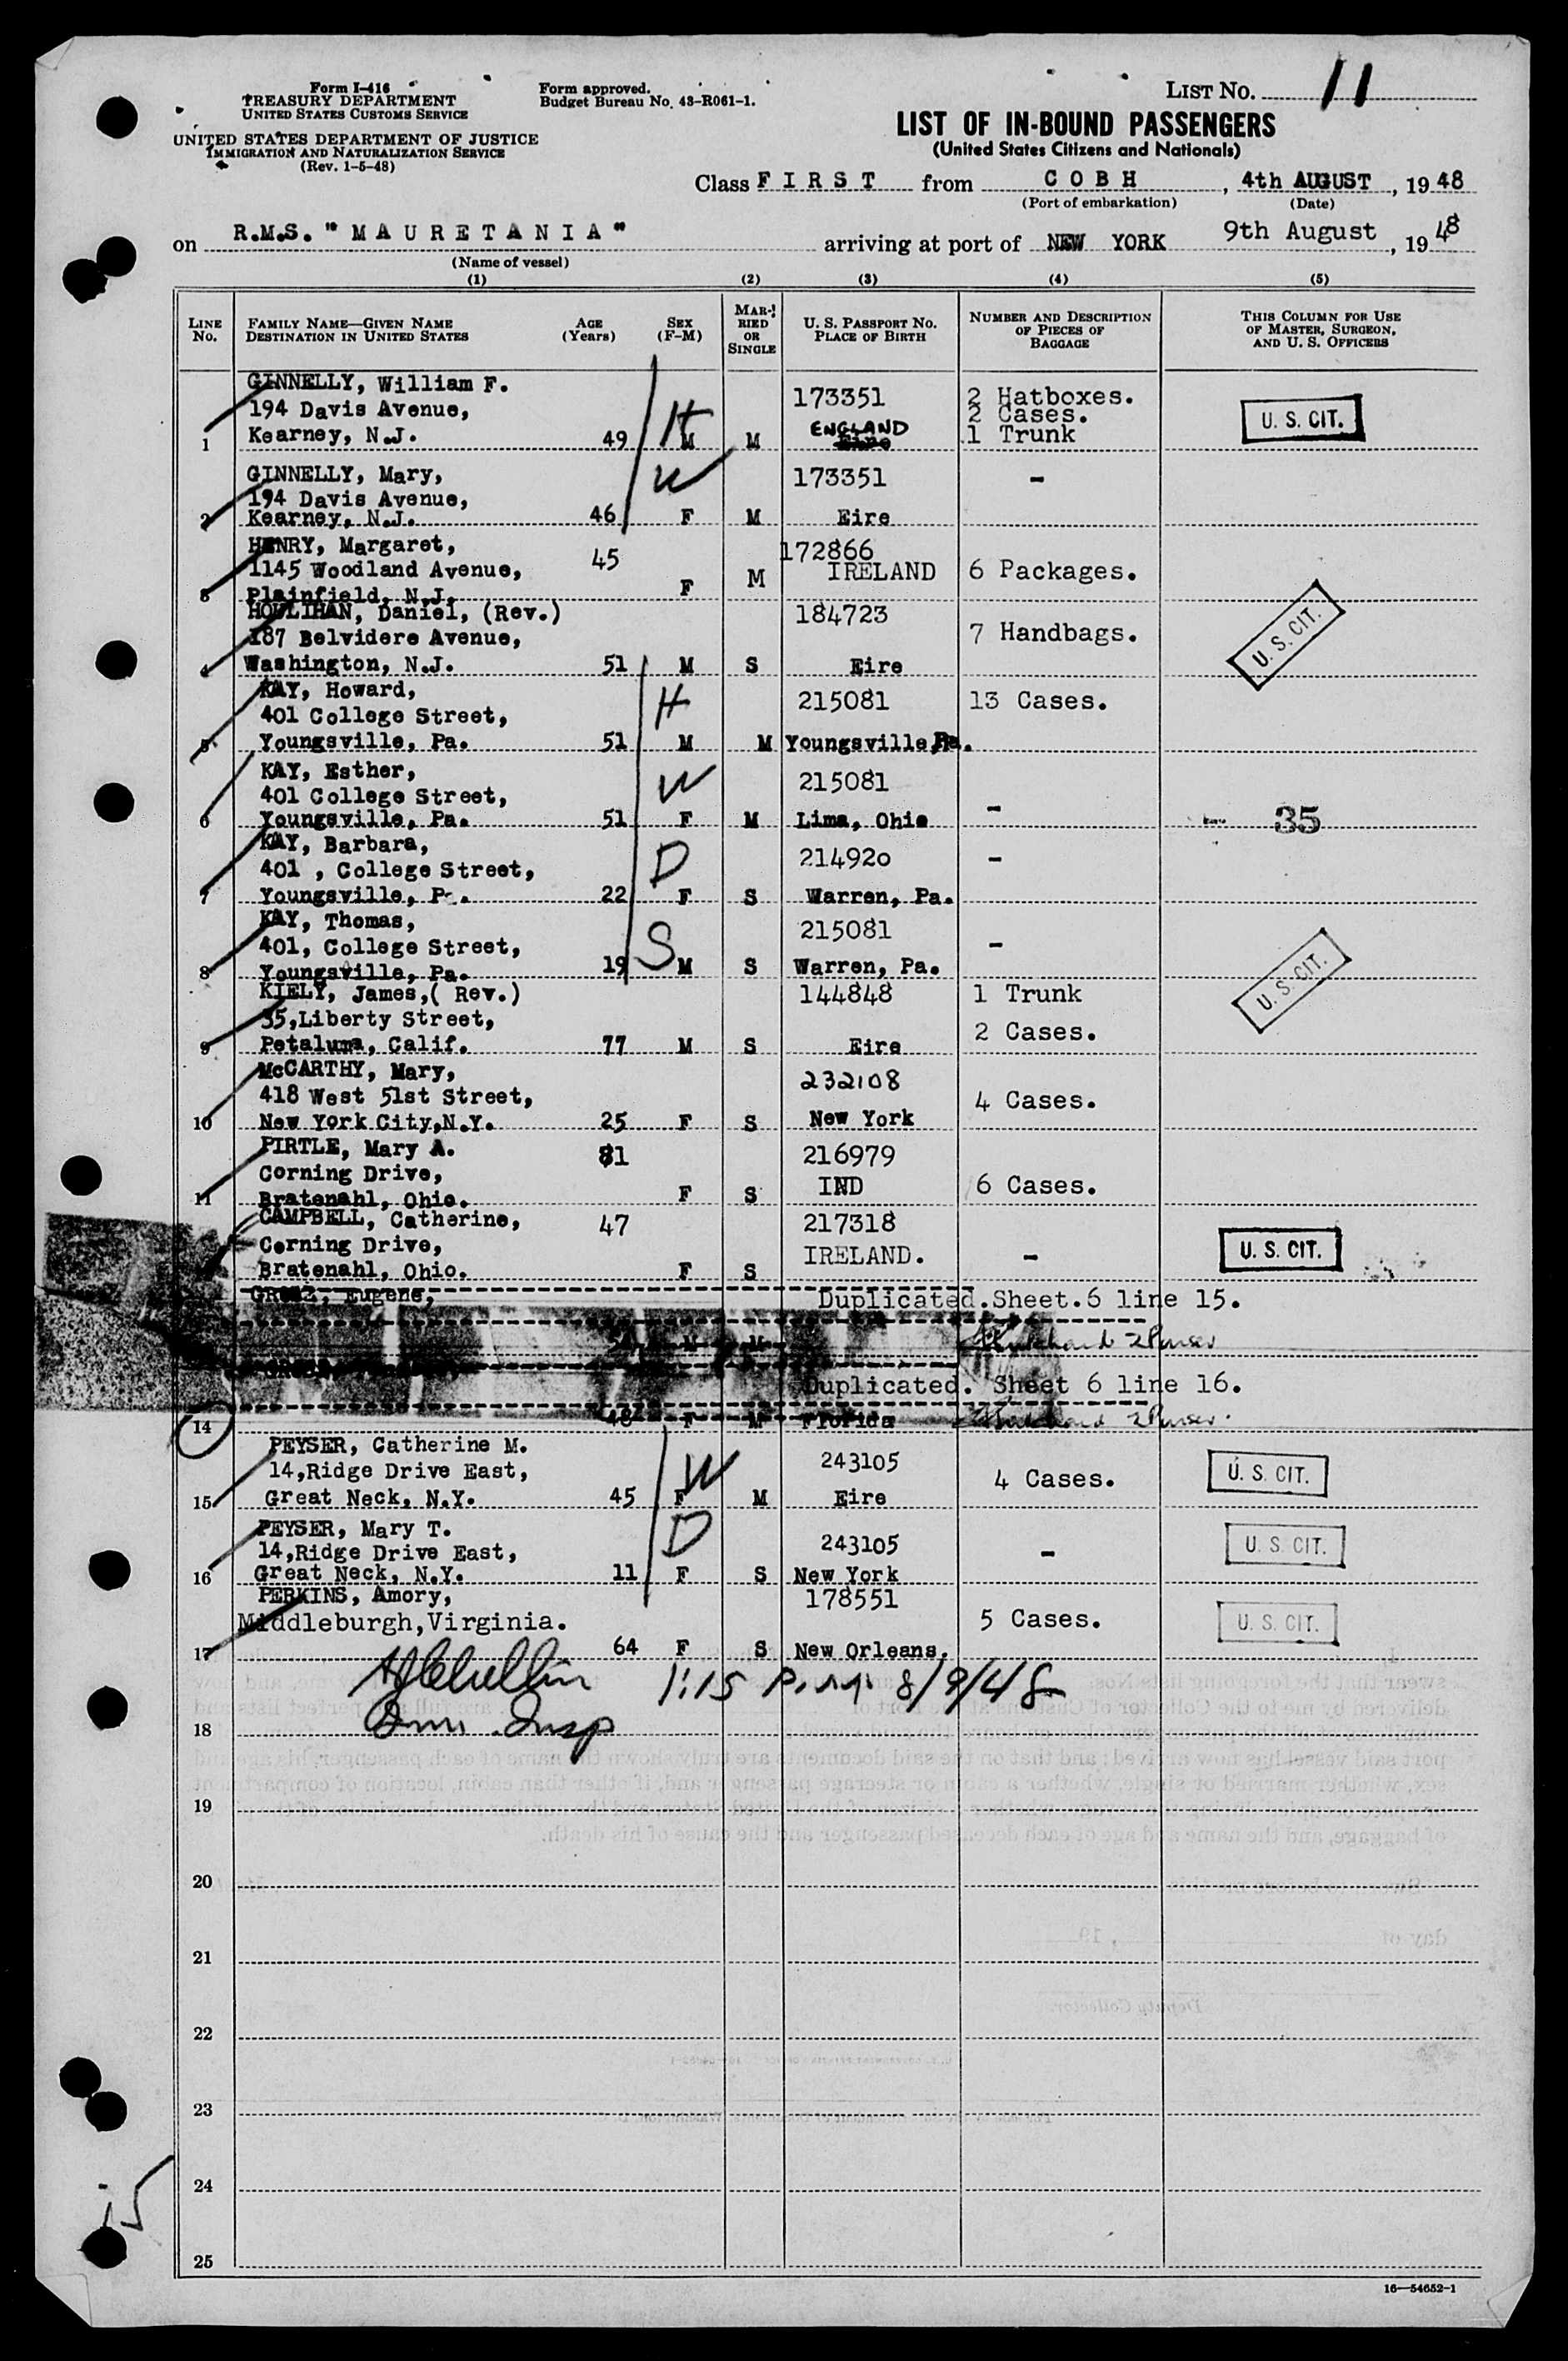 Form I-416
TREASURY DEPARTMENT
UNITED STATES CUSTOMS SERVICE
UNITED STATES DEPARTMENT OF JUSTICE
IMMIGRATION AND NATURALIZATION SERVICE
(Rev. 1-5-48)
Form approved.
Budget Bureau No. 43-R061-1.
LIST NO. 11
LIST OF IN-BOUND PASSENGERS
(United States Citizens and Nationals)
Class FIRST from COBH, 4th AUGUST, 1948
(Port of embarkation) (Date)
on R.M.S. "MAURETANIA" arriving at port of NEW YORK 9th August, 1948
(Name of vessel)
(1) (2) (3) (4) (5)
LINE No.
FAMILY NAME—GIVEN NAME
DESTINATION IN UNITED STATES
AGE (Years)
SEX (F-M)
MARRIED OR SINGLE
U. S. PASSPORT NO.
PLACE OF BIRTH
NUMBER AND DESCRIPTION OF PIECES OF BAGGAGE
THIS COLUMN FOR USE OF MASTER, SURGEON, AND U. S. OFFICERS
GINNELLY, William F. 173351 2 Hatboxes.
194 Davis Avenue, H ENGLAND 2 Cases. U. S. CIT.
1 Kearney, N.J. 49 M M Eire 1 Trunk
GINNELLY, Mary, W 173351 -
194 Davis Avenue,
2 Kearney, N.J. 46 F M Eire
HENRY, Margaret, 45 172866
1145 Woodland Avenue, M IRELAND 6 Packages.
3 Plainfield, N.J. F
HOULIHAN, Daniel, (Rev.) 184723
187 Belvidere Avenue, 7 Handbags. U. S. CIT.
4 Washington, N.J. 51 M S Eire
KAY, Howard, H 215081 13 Cases.
401 College Street,
5 Youngsville, Pa. 51 M M Youngsville,Pa.
KAY, Esther, W 215081
401 College Street, -
6 Youngsville, Pa. 51 F M Lima, Ohio 35
KAY, Barbara, D 214920 -
401 , College Street,
7 Youngsville, Pa. 22 F S Warren, Pa.
KAY, Thomas, S 215081
401, College Street, -
8 Youngsville, Pa. 19 M S Warren, Pa.
KIELY, James,( Rev.) 144848 1 Trunk U. S. CIT.
35,Liberty Street, 2 Cases.
9 Petaluma, Calif. 77 M S Eire
McCARTHY, Mary, 232108
418 West 51st Street, 4 Cases.
10 New York City,N.Y. 25 F S New York
PIRTLE, Mary A. 81 216979
Corning Drive, IND 6 Cases.
11 Bratenahl, Ohio. F S
CAMPBELL, Catherine, 47 217318
Corning Drive, IRELAND. - U. S. CIT.
Bratenahl, Ohio. F S
Eugene, Duplicated. Sheet.6 line 15.
M M 2 Purser
Duplicated. Sheet 6 line 16.
14 48 F M Florida 2 Purser.
PEYSER, Catherine M. W 243105
14,Ridge Drive East, 4 Cases. U. S. CIT.
15 Great Neck, N.Y. 45 F M Eire
PEYSER, Mary T. D 243105
14,Ridge Drive East, - U. S. CIT.
16 Great Neck, N.Y. 11 F S New York
PERKINS, Amory, 178551
Middleburgh,Virginia. 5 Cases. U. S. CIT.
17 64 F S New Orleans.
1:15 P.M. 8/9/48
18 Imm. Insp
19
20
21
22
23
24
25
15
16—54652-1